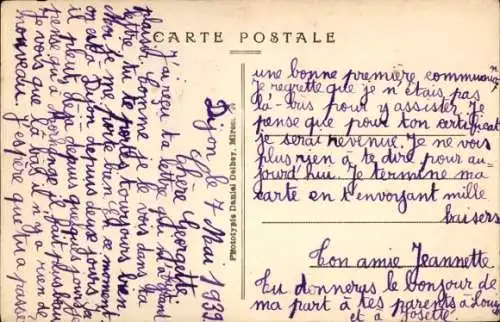 CARTE POSTALE
Dijon le 7 Mai 1939
Chère Georgette
J'ai reçu ta lettre qui m'a fait grand
plaisir. Comme je le vois dans ta
lettre, tu te portes toujours bien
Moi je me porte bien. En ce moment
on est à Dijon depuis deux jours
il pleut depuis quelques jours, je
pense qu'à fait plus beau
Je vois que là bas il n'y a rien de
nouveau. J'espère que tu a passé
une bonne première communion
Je regrette que je n'étais pas
là-bas pour y assister. Je
pense que pour ton certificat
je serai revenue. Je ne vois
plus rien à te dire pour au-
jourd'hui. Je termine ma
carte en t'envoyant mille
baisers
Ton amie Jeannette
Tu donneras le bonjour de
ma part à tes parents à Louis
et à Josette.
Phototypie Daniel Delbey, Mirec